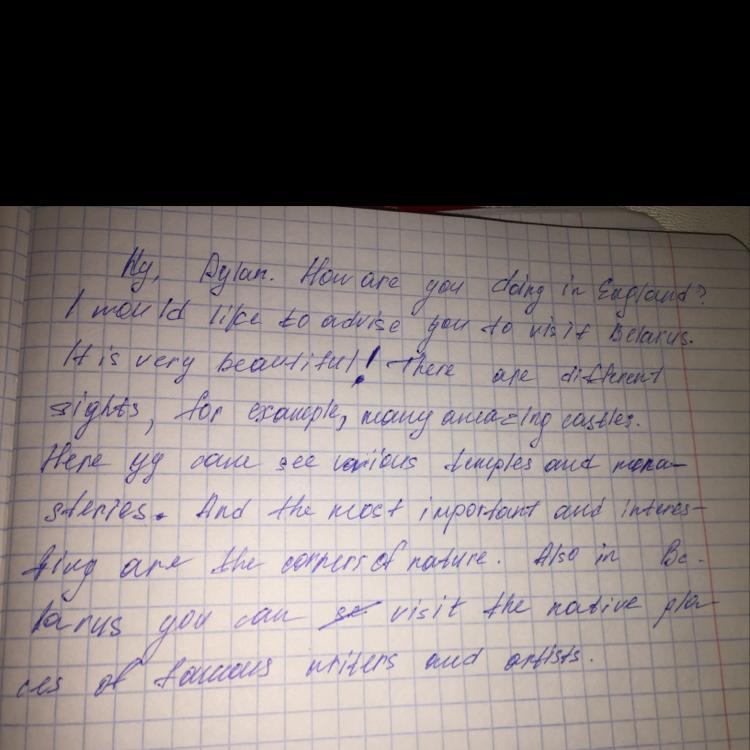 Hy, Dylan. How are you doing in England?
I would like to advise you to visit Belarus.
It is very beautiful! There are different
sights, for example, many amazing castles.
Here yy cane see various temples and mona-
steries. And the most important and interes-
ting are the corners of nature. Also in Be-
larus you can se visit the native pla-
ces of famous writers and artists.